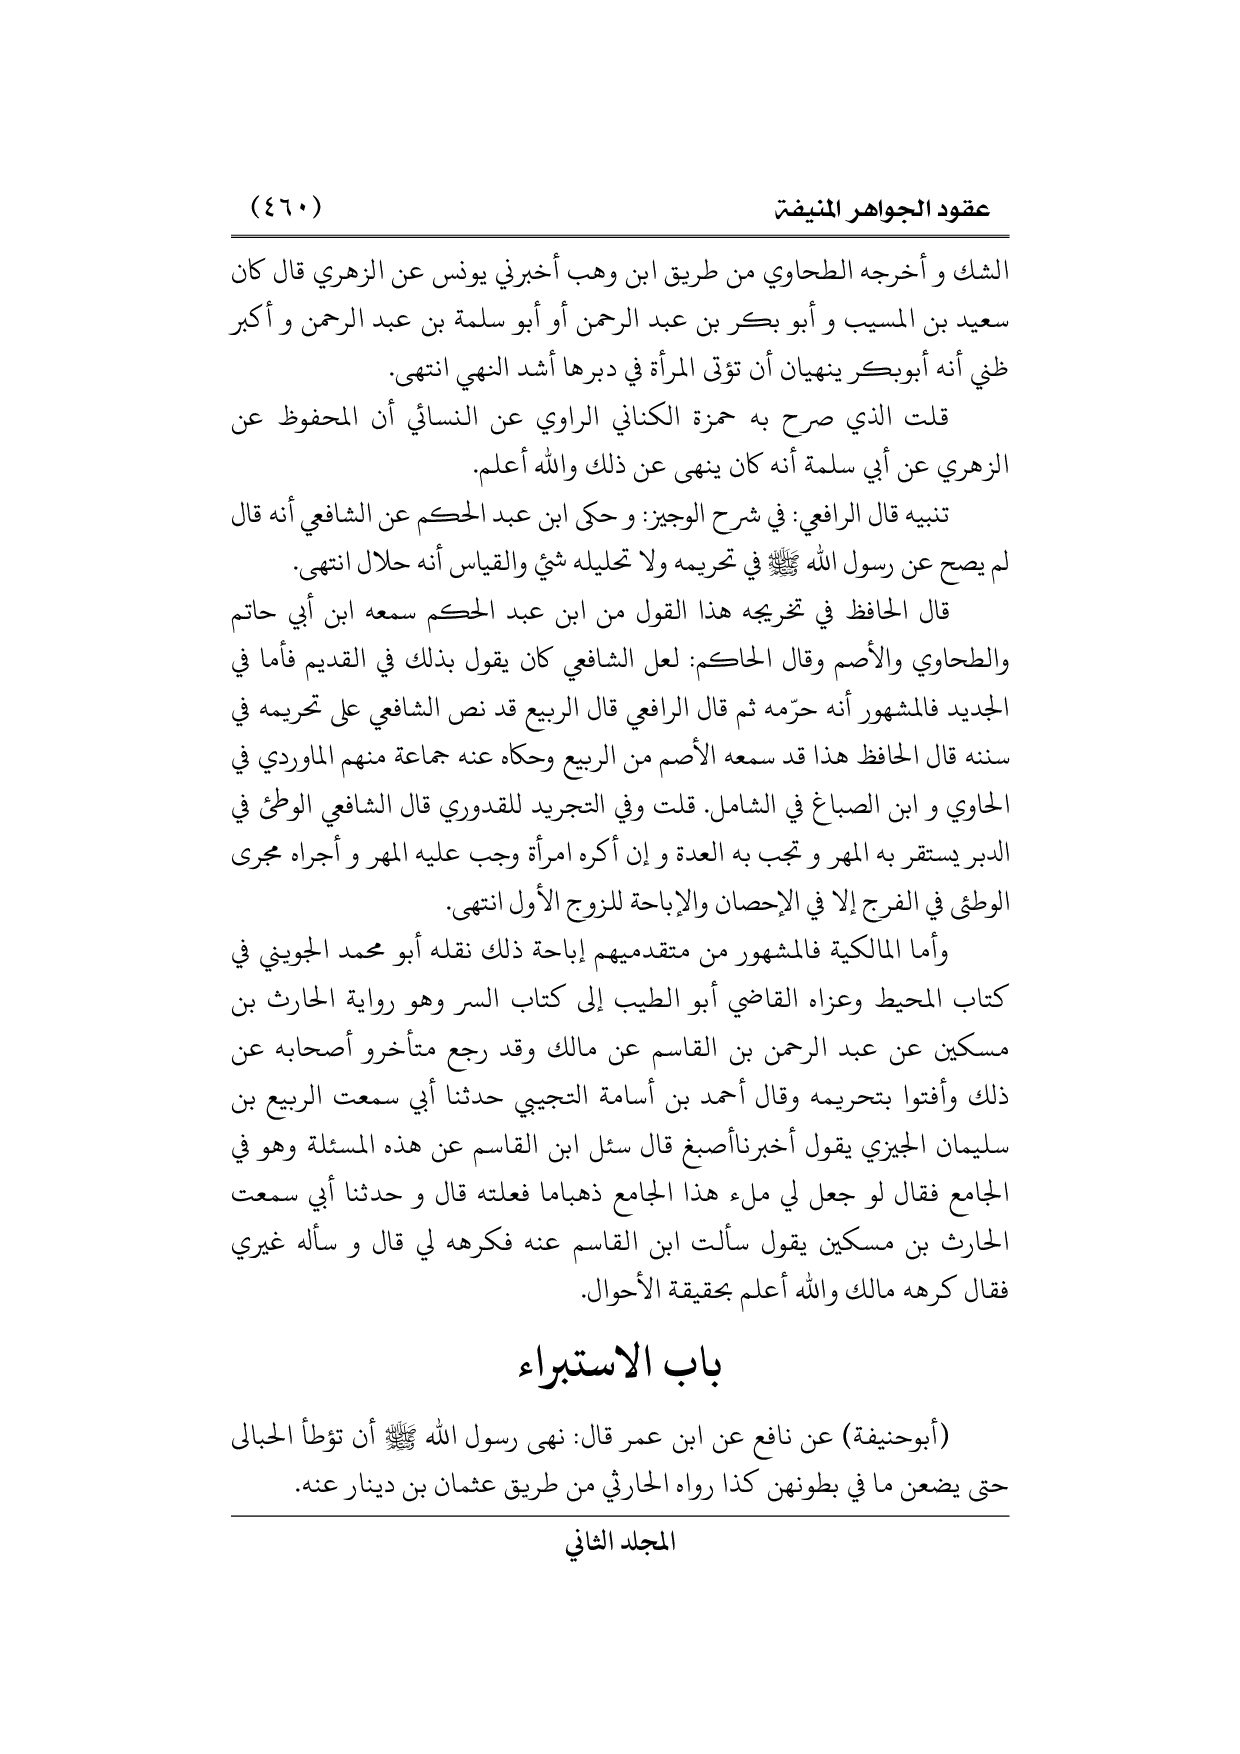 عقود الجواهر المنيفة (٤٦٠)
الشك و أخرجه الطحاوي من طريق ابن وهب أخبرني يونس عن الزهري قال كان
سعيد بن المسيب و أبو بكر بن عبد الرحمن أو أبو سلمة بن عبد الرحمن و أكبر
ظني أنه أبوبكر ينهيان أن تؤتى المرأة في دبرها أشد النهي انتهى.
قلت الذي صرح به حمزة الكناني الراوي عن النسائي أن المحفوظ عن
الزهري عن أبي سلمة أنه كان ينهى عن ذلك والله أعلم.
تنبيه قال الرافعي: في شرح الوجيز: و حكى ابن عبد الحكم عن الشافعي أنه قال
لم يصح عن رسول الله ﷺ في تحريمه ولا تحليله شئ والقياس أنه حلال انتهى.
قال الحافظ في تخريجه هذا القول من ابن عبد الحكم سمعه ابن أبي حاتم
والطحاوي والأصم وقال الحاكم: لعل الشافعي كان يقول بذلك في القديم فأما في
الجديد فالمشهور أنه حرّمه ثم قال الرافعي قال الربيع قد نص الشافعي على تحريمه في
سننه قال الحافظ هذا قد سمعه الأصم من الربيع وحكاه عنه جماعة منهم الماوردي في
الحاوي و ابن الصباغ في الشامل. قلت وفي التجريد للقدوري قال الشافعي الوطئ في
الدبر يستقر به المهر و تجب به العدة و إن أكره امرأة وجب عليه المهر و أجراه مجرى
الوطئى في الفرج إلا في الإحصان والإباحة للزوج الأول انتهى.
وأما المالكية فالمشهور من متقدميهم إباحة ذلك نقله أبو محمد الجويني في
كتاب المحيط وعزاه القاضي أبو الطيب إلى كتاب السر وهو رواية الحارث بن
مسكين عن عبد الرحمن بن القاسم عن مالك وقد رجع متأخرو أصحابه عن
ذلك وأفتوا بتحريمه وقال أحمد بن أسامة التجيبي حدثنا أبي سمعت الربيع بن
سليمان الجيزي يقول أخبرناأصبغ قال سئل ابن القاسم عن هذه المسئلة وهو في
الجامع فقال لو جعل لي ملء هذا الجامع ذهباما فعلته قال و حدثنا أبي سمعت
الحارث بن مسكين يقول سألت ابن القاسم عنه فكرهه لي قال و سأله غيري
فقال كرهه مالك والله أعلم بحقيقة الأحوال.
باب الاستبراء
(أبوحنيفة) عن نافع عن ابن عمر قال: نهى رسول الله ﷺ أن تؤطأ الحبالى
حتى يضعن ما في بطونهن كذا رواه الحارثي من طريق عثمان بن دينار عنه.
المجلد الثاني